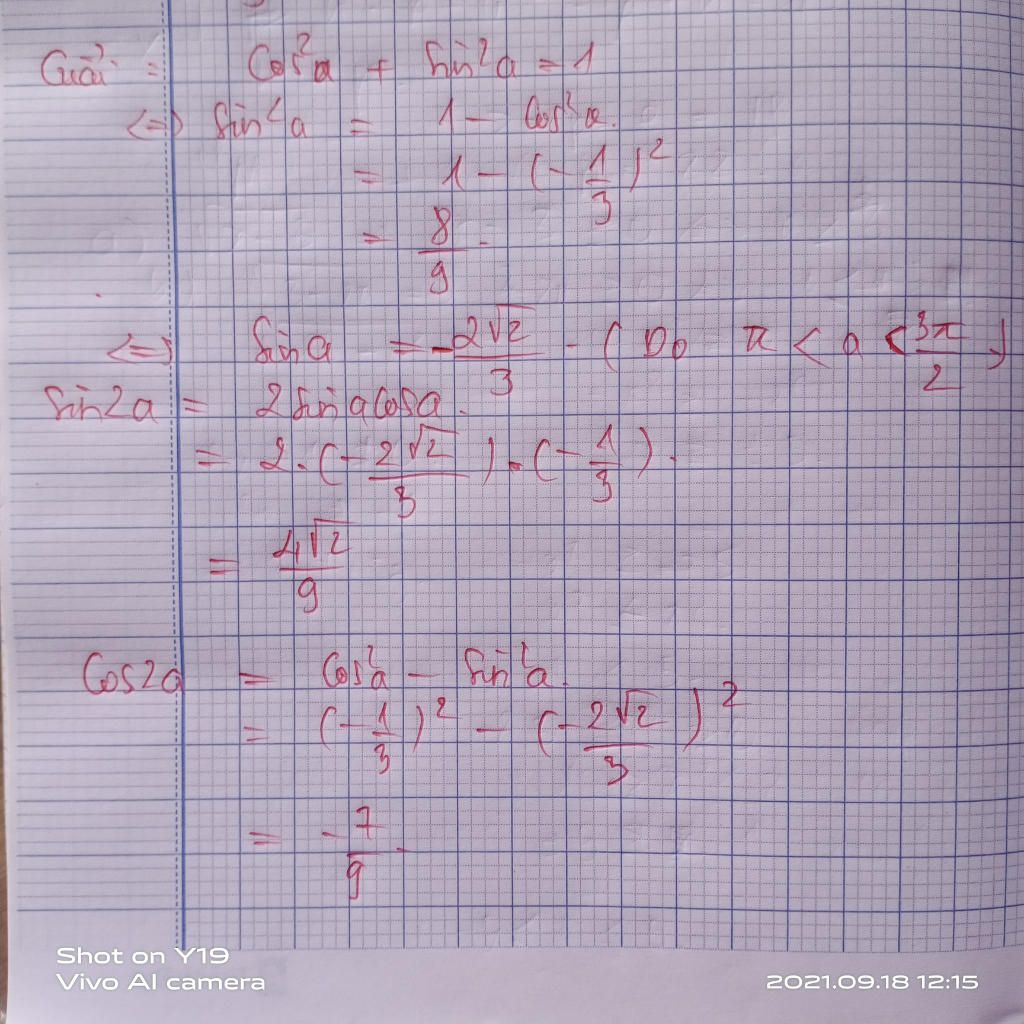 Giải: Cos²a + Sin²a = 1
<=> Sin²a = 1 - Cos²a.
= 1 - (-1/3)²
= 8/9.
<=> Sina = -2√2/3 - (Do π < a < 3π/2)
Sin2a = 2SinaCosa.
= 2.(-2√2/3).(-1/3).
= 4√2/9
Cos2a = Cos²a - Sin²a.
= (-1/3)² - (-2√2/3)²
= -7/9.
Shot on Y19
Vivo AI camera
2021.09.18 12:15